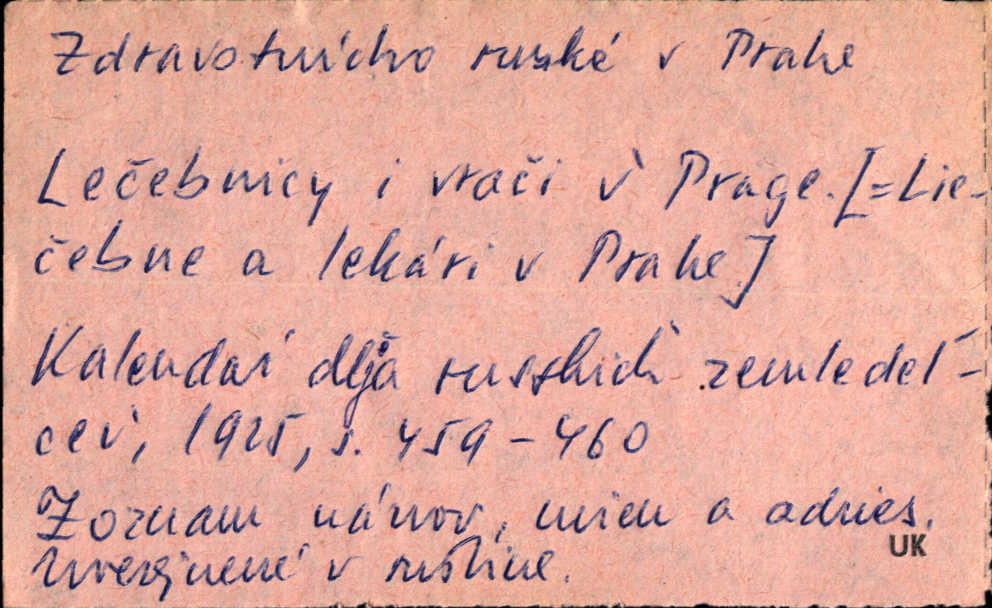 Zdravotnícho ruské v Prahe
Lečebnicy i vrači v̀ Prage. [=Lie-
čebne a lekári v Prahe]
Kalendaŕ dlja russkich̀ zemledeĺ-
cev̀, 1925, s. 459-460
Zoznam názvov, mien a adries.
Uverejnené v ruštine.
UK